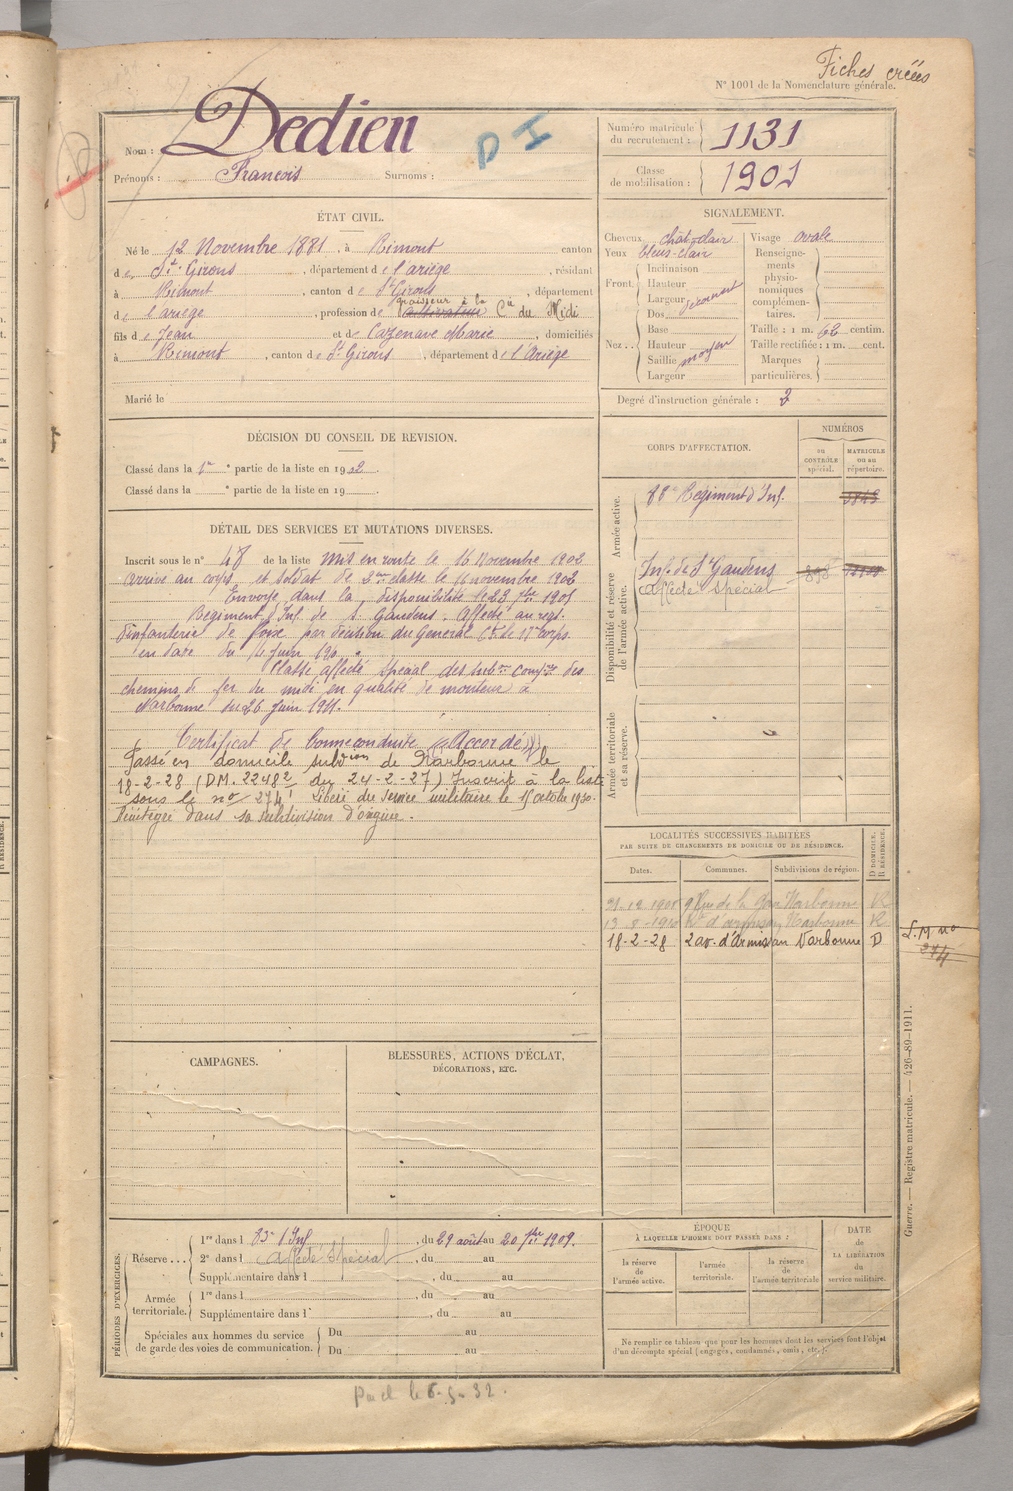 Fiches créées
N° 1001 de la Nomenclature générale.
Nom : Dedieu
D I
Prénoms : François Surnoms :
Numéro matricule du recrutement : 1131
Classe de mobilisation : 1901
ÉTAT CIVIL.
Né le 12 Novembre 1881, à Rimont canton
de St Girons, département de l'ariège, résidant
à Rimont, canton de St Girons, département
de l'ariège, profession de cultivateur graisseur à la Cie du Midi
fils de Jean et de Cazenave Marie, domiciliés
à Rimont, canton de St Girons, département de l'Ariège
Marié le
SIGNALEMENT.
Cheveux chât-clair Visage ovale
Yeux bleus-clair Renseignements physionomiques complémentaires.
Front. Inclinaison
Hauteur
Largeur découvert
Nez .. Dos
Base
Hauteur
Saillie moyen
Largeur
Taille : 1 m. 62 centim.
Taille rectifiée : 1 m. cent.
Marques particulières.
Degré d'instruction générale : 3
DÉCISION DU CONSEIL DE REVISION.
Classé dans la 1re partie de la liste en 1902.
Classé dans la ° partie de la liste en 19 .
CORPS D'AFFECTATION.
NUMÉROS
au CONTRÔLE spécial.
MATRICULE ou au répertoire.
Armée active.
88e Régiment d'Inf.
Disponibilité et réserve de l'armée active.
Inf. de St Gaudens
affecté spécial
Armée territoriale et sa réserve.
DÉTAIL DES SERVICES ET MUTATIONS DIVERSES.
Inscrit sous le n° 48 de la liste Mis en route le 16 Novembre 1902
arrivé au corps et soldat de 2me classe le 16 novembre 1902
Envoyé dans la disponibilité le 23 7bre 1905
Régiment d'Inf. de St Gaudens. Affecté au régt.
d'infanterie de Foix par décision du Général Ct le 17e corps
en date du
Classé affecté spécial des subons compres des
chemins de fer du midi en qualité de monteur à
Narbonne du 26 Juin 1911.
Certificat de bonne conduite "Accordé"
Passé en domicile subdion de Narbonne le
18-2-28 (D.M. 2248 2 du 24-2-27) Inscrit à la liste
sous le no 274 Libéré du service militaire le 15 octobre 1930.
Réintégré dans sa subdivision d'origine.
LOCALITÉS SUCCESSIVES HABITÉES
PAR SUITE DE CHANGEMENTS DE DOMICILE OU DE RÉSIDENCE.
Dates. Communes. Subdivisions de région. D DOMICILE. R RÉSIDENCE.
Rue de la Gare Narbonne R
d'armissan Narbonne R
18-2-28 2 av. d'Armissan Narbonne D
L.M. no
274
CAMPAGNES.
BLESSURES, ACTIONS D'ÉCLAT,
DÉCORATIONS, ETC.
PÉRIODES D'EXERCICES.
Réserve ... 1re dans l 83e d'Inf, du 29 août au 20 7bre 1909.
2e dans l affecté spécial, du au
Supplémentaire dans l , du au
Armée territoriale. 1re dans l , du au
Supplémentaire dans l' , du au
Spéciales aux hommes du service de garde des voies de communication. Du au
Du au
ÉPOQUE
À LAQUELLE L'HOMME DOIT PASSER DANS :
la réserve de l'armée active.
l'armée territoriale.
la réserve de l'armée territoriale
DATE de LA LIBÉRATION du service militaire.
Ne remplir ce tableau que pour les hommes dont les services font l'objet
d'un décompte spécial (engagés, condamnés, omis, etc.).
Guerre. — Registre matricule. — 426-89-1911.